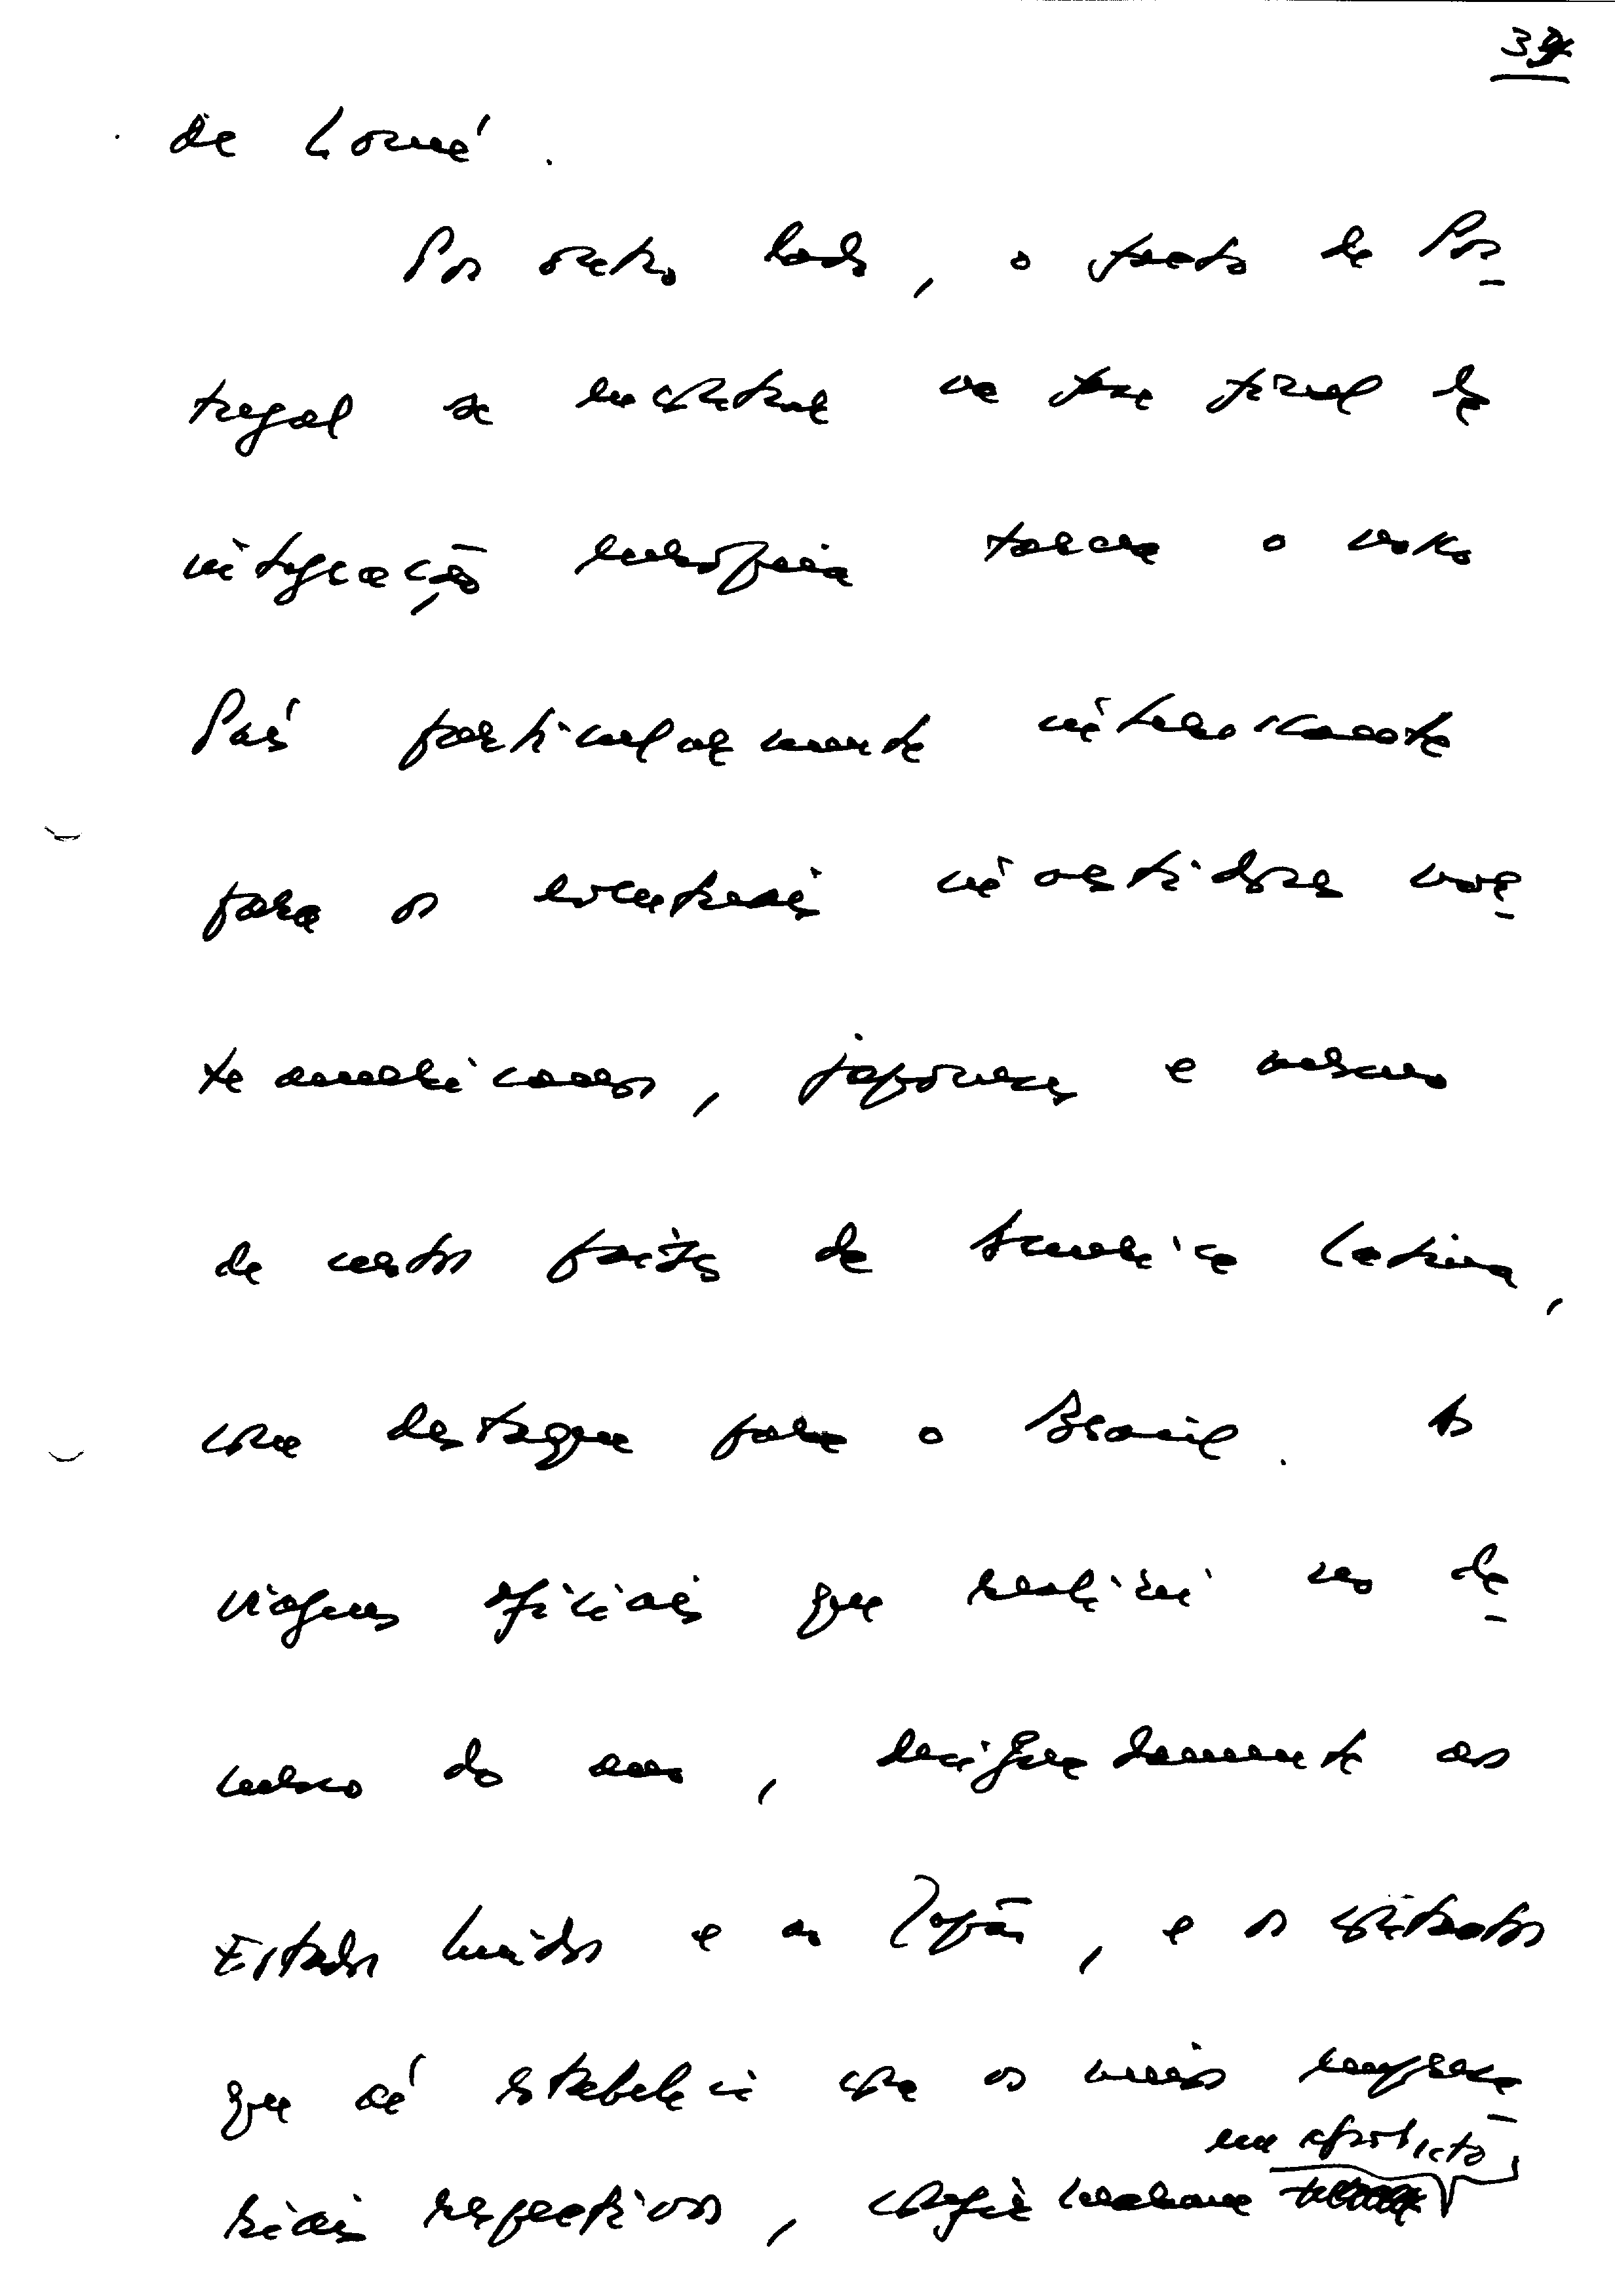 de Lomé.
Por outro lado, o facto de Por-
tugal se encontrar na fase final de
integração europeia torna o nosso
País particularmente interessante
para os eventuais investidores nor-
te americanos, japoneses e mesmo
de certos países da América Latina,
com destaque para o Brasil. As
viagens oficiais que realizei no de-
curso do ano, designadamente aos
Estados Unidos e ao Japão, e os contactos
que aí estabeleci com os meios empresa-
riais respectivos, confirmaram
em absoluto